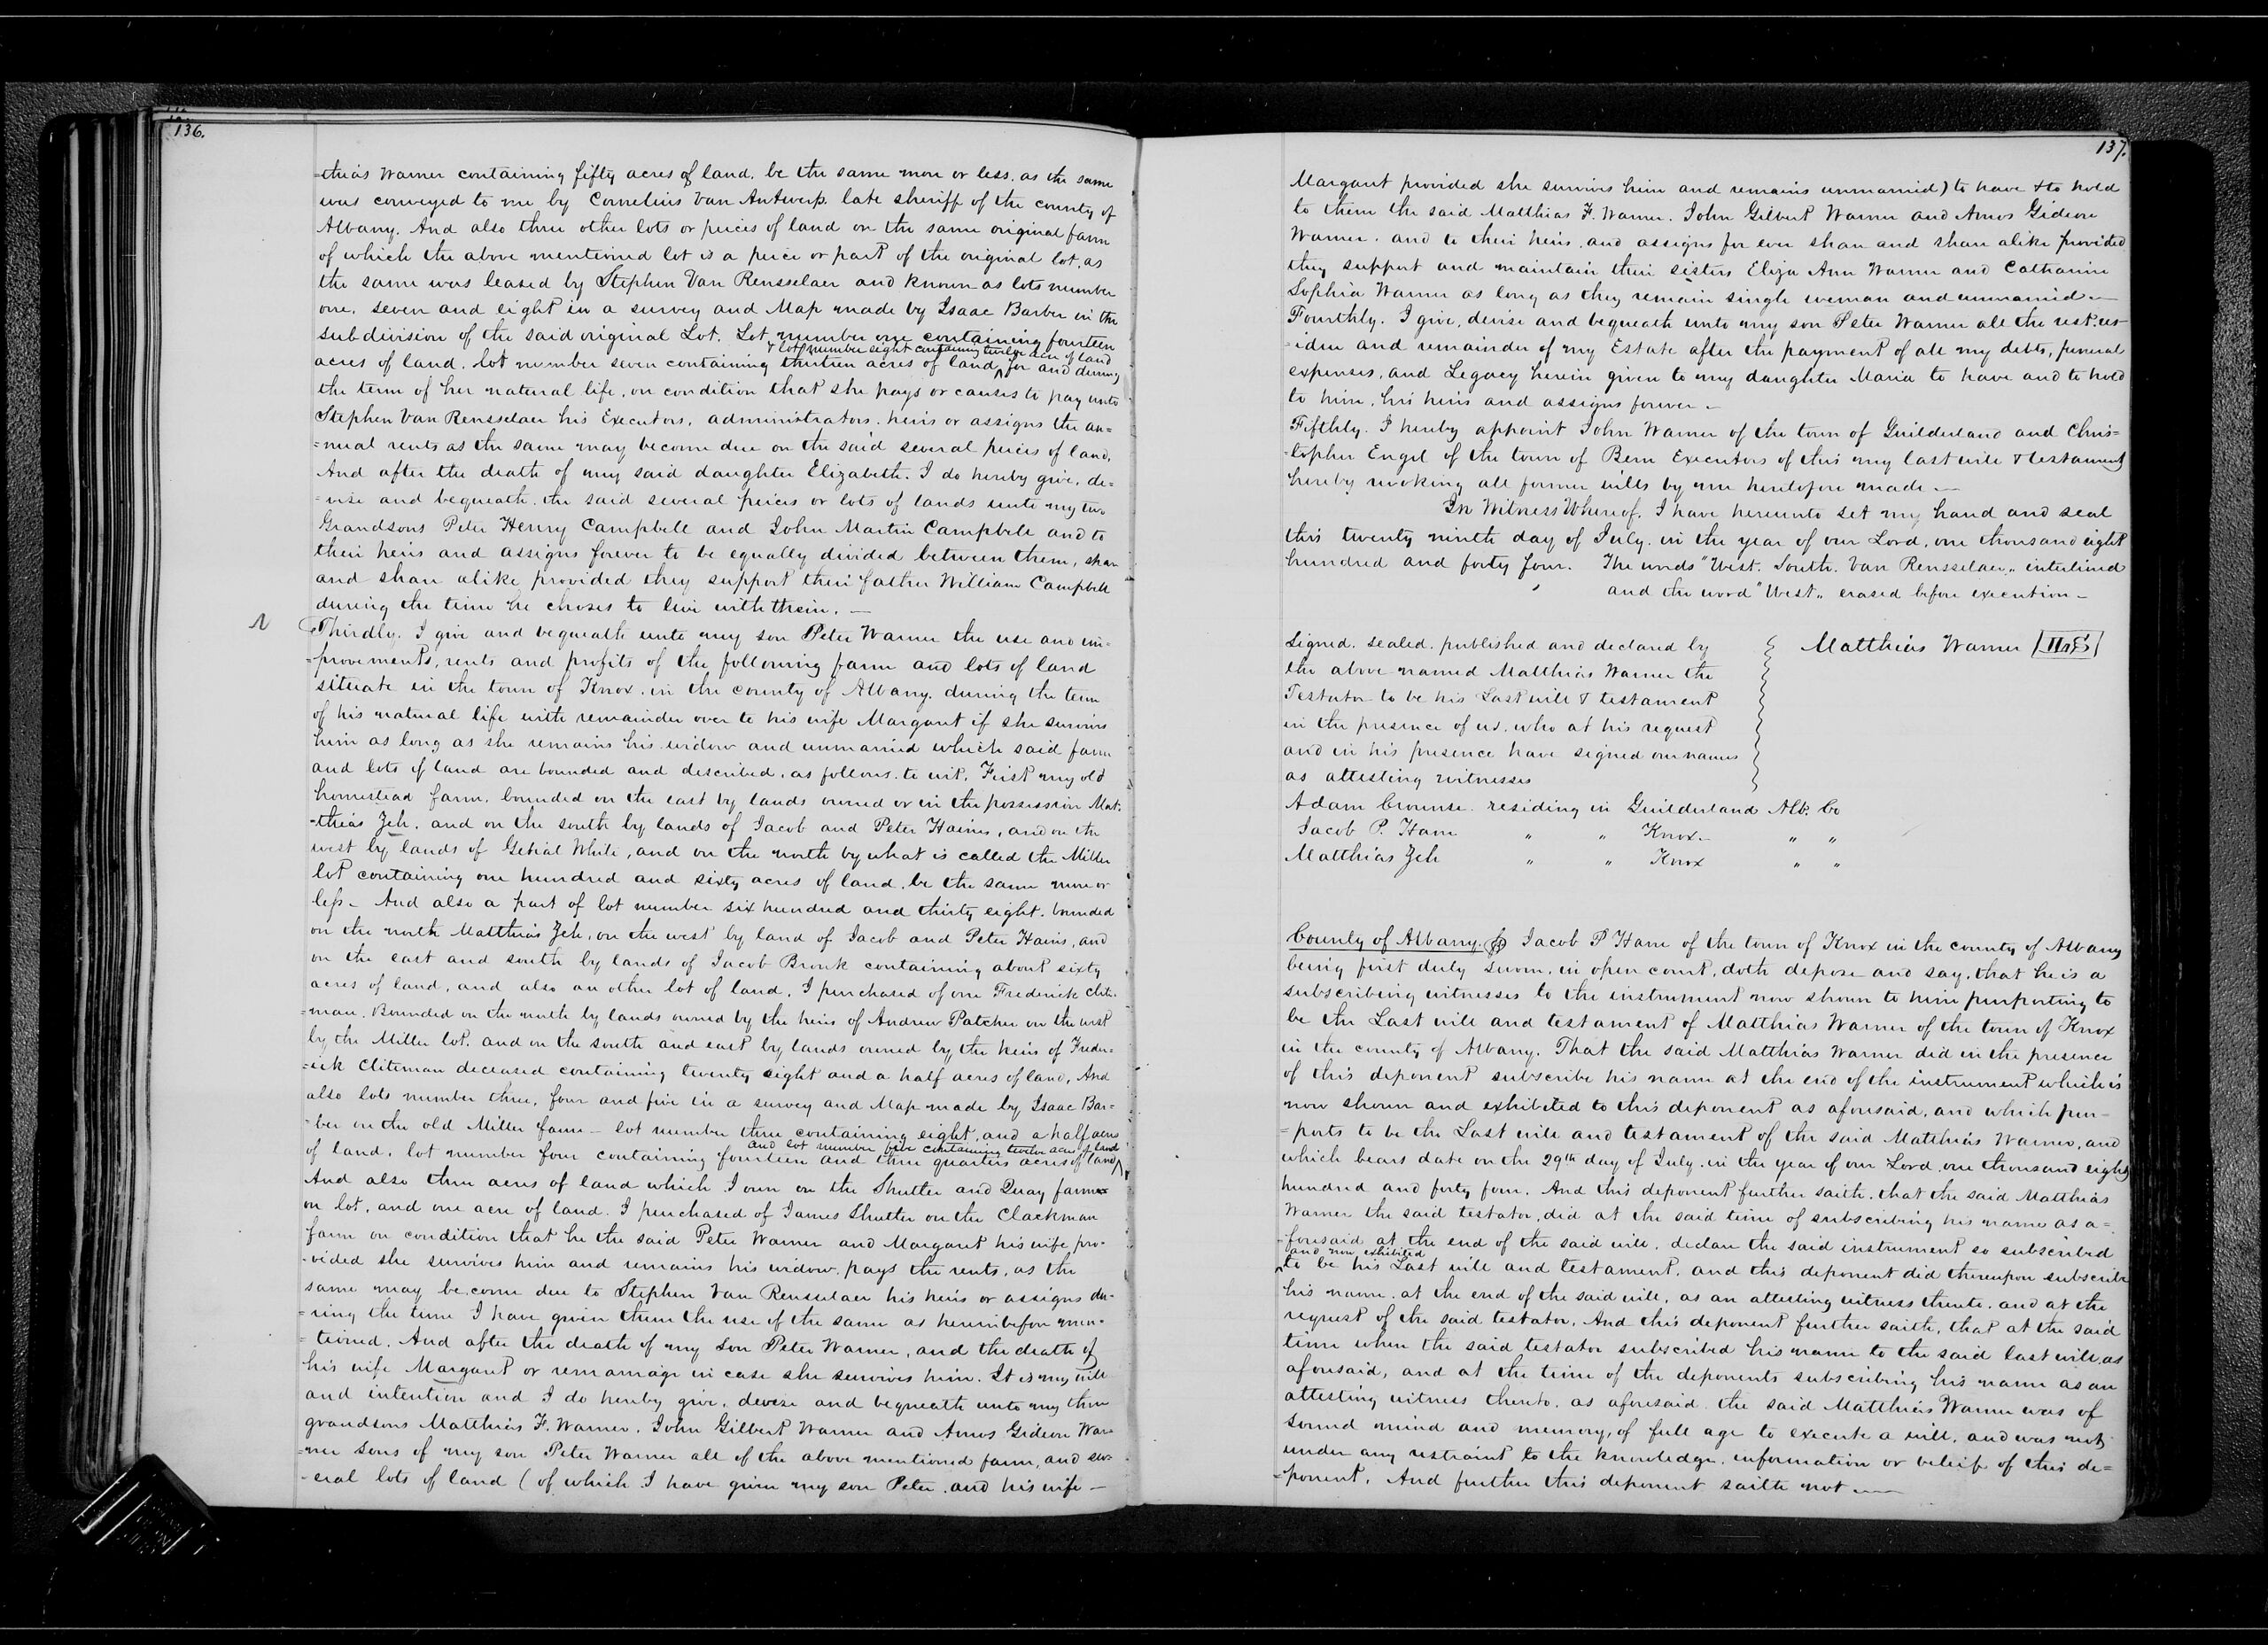 136.
=thias Warner containing fifty acres of land, be the same more or less, as the same
was conveyed to me by Cornelius Van Antwerp, late sheriff of the county of
Albany. And also three other lots or peices of land on the same original farm
of which the above mentioned lot is a peice or part of the original lot, as
the same was leased by Stephen Van Rensselaer and known as lots number
one, seven and eight in a survey and Map made by Isaac Barber in the
subdivision of the said original Lot. Lot number one containing fourteen
& lot number eight containing twelve acres of land
acres of land, lot number seven containing thirteen acres of land ^ for and during
the term of her natural life, on condition that she pays or causes to pay unto
Stephen Van Rensselaer his Executors, administrators, heirs or assigns the an=
=nual rents as the same may become due on the said several peices of land.
And after the death of my said daughter Elizabeth. I do hereby give, de=
=vise and bequeath, the said several peices or lots of lands unto my two
Grandsons Peter Henry Campbell and John Martin Campbell and to
their heirs and assigns forever to be equally divided between them, share
and share alike provided they support their father William Campbell
during the time he chooses to live with them. —
Thirdly. I give and bequeath unto my son Peter Warner the use and im=
=provements, rents and profits of the following farm and lots of land
situate in the town of Knox, in the county of Albany, during the term
of his natural life with remainder over to his wife Margaret if she survives
him as long as she remains his widow and unmarried which said farm
and lots of land are bounded and described, as follows, to wit, First my old
homestead farm, bounded on the east by lands owned or in the possession Mat=
=thias Zeh, and on the south by lands of Jacob and Peter Haines, and on the
west by lands of White, and on the north by what is called the Miller
lot containing one hundred and sixty acres of land, be the same more or
less — And also a part of lot number six hundred and thirty eight, bounded
on the north Matthias Zeh, on the west by land of Jacob and Peter Hains, and
on the east and south by lands of Jacob Bronk containing about sixty
acres of land, and also an other lot of land, I purchased of one Frederick Clite=
=man. Bounded on the north by lands owned by the heirs of Andrew Patchen on the west
by the Miller lot, and on the south and east by lands owned by the heirs of Freder=
=ick Cliteman deceased containing twenty eight and a half acres of land, And
also lots number three, four and five in a survey and Map made by Isaac Bar=
=ber on the old Miller farm — lot number three containing eight, and a half acres
and lot number five containing twelve acres of land
of land, lot number four containing fourteen and three quarters acres of land ^
And also three acres of land which I own on the Shutter and Quay farm
on lot, and one acre of land I purchased of James Shutter on the Clackman
farm on condition that he the said Peter Warner and Margaret his wife, pro=
=vided she survives him and remains his widow, pays the rents, as the
same may be come due to Stephen Van Rensselaer his heirs or assigns du=
=ring the time I have given them the use of the same as hereinbefore men=
=tioned. And after the death of my son Peter Warner, and the death of
his wife Margaret or remarriage in case she survives him. It is my will
and intention and I do hereby give, devise and bequeath unto my three
grandsons Matthias F. Warner, John Gilbert Warner and Amos Gideon War=
=ner sons of my son Peter Warner all of the above mentioned farm, and sev=
=eral lots of land (of which I have given my son Peter, and his wife —
137.
Margaret provided she survives him and remains unmarried) to have & to hold
to them the said Matthias F. Warner, John Gilbert Warner and Amos Gideon
Warner, and to their heirs, and assigns for ever share and share alike provided
they support and maintain their sisters Eliza Ann Warner and Catharine
Sophia Warner as long as they remain single woman and unmarried —
Fourthly. I give, devise and bequeath unto my son Peter Warner all the rest, res=
=idue and remainder of my Estate after the payment of all my debts, funeral
expenses, and Legacy herein given to my daughter Maria to have and to hold
to him, his heirs and assigns forever —
Fifthly. I hereby appoint John Warner of the town of Guilderland and Chris=
=topher Engel of the town of Bern Executors of this my last will & testament
hereby revoking all former wills by me heretofore made —
In Witness Whereof, I have hereunto set my hand and seal
this twenty ninth day of July, in the year of our Lord, one thousand eight
hundred and forty four. The words "West. South. Van Rensselaer" interlined
and the word "West" erased before execution —
Signed, sealed, published and declared by
the above named Matthias Warner the
Testator to be his Last will & testament
in the presence of us, who at his request
and in his presence have signed our names
as attesting witnesses
Matthias Warner
Adam Crounse residing in Guilderland Alb. Co
Jacob P. Hane " " Knox — " "
Matthias Zeh " " Knox " "
County of Albany. Jacob P Hane of the town of Knox in the county of Albany
being first duly sworn, in open court, doth depose and say, that he is a
subscribing witnesses to the instrument now shown to him purporting to
be the Last will and testament of Matthias Warner of the town of Knox
in the county of Albany. That the said Matthias Warner did in the presence
of this deponent subscribe his name at the end of the instrument which is
now shown and exhibited to this deponent as aforesaid, and which pur=
=ports to be the Last will and testament of the said Matthias Warner, and
which bears date on the 29th day of July, in the year of our Lord, one thousand eight
hundred and forty four. And this deponent further saith, that the said Matthias
Warner the said testator, did at the said time of subscribing his name as a=
=foresaid at the end of the said will, declare the said instrument so subscribed
and now exhibited
^to be his Last will and testament, and this deponent did thereupon subscribe
his name, at the end of the said will, as an attesting witness thereto, and at the
request of the said testator. And this deponent further saith, that at the said
time when the said testator subscribed his name to the said last will, as
aforesaid, and at the time of the deponents subscribing his name as an
attesting witness thereto, as aforesaid the said Matthias Warner was of
sound mind and memory, of full age to execute a will, and was not
under any restraint to the knowledge, information or beleif of this de=
=ponent. And further this deponent saith not —